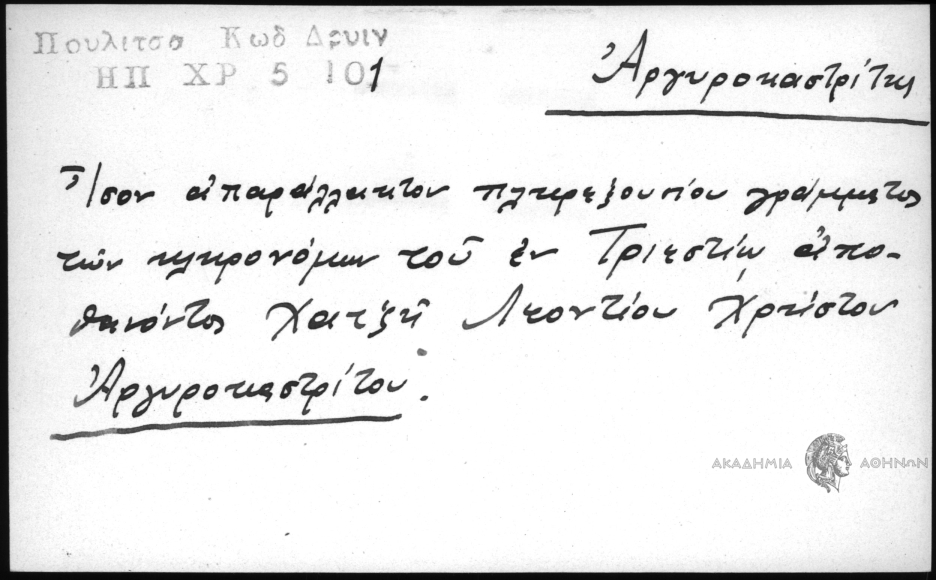 Πουλιτσα Κωδ Δρυιν
ΗΠ ΧΡ 5 101
Ἀργυροκαστρίτης
Ἴσον ἀπαράλλακτον πληρεξουσίου γράμματος
τῶν κληρονόμων τοῦ ἐν Τριεστίῳ ἀπο-
θανόντος Χατζῆ Λεοντίου Χρήστου
Ἀργυροκαστρίτου.
ΑΚΑΔΗΜΙΑ ΑΘΗΝΩΝ